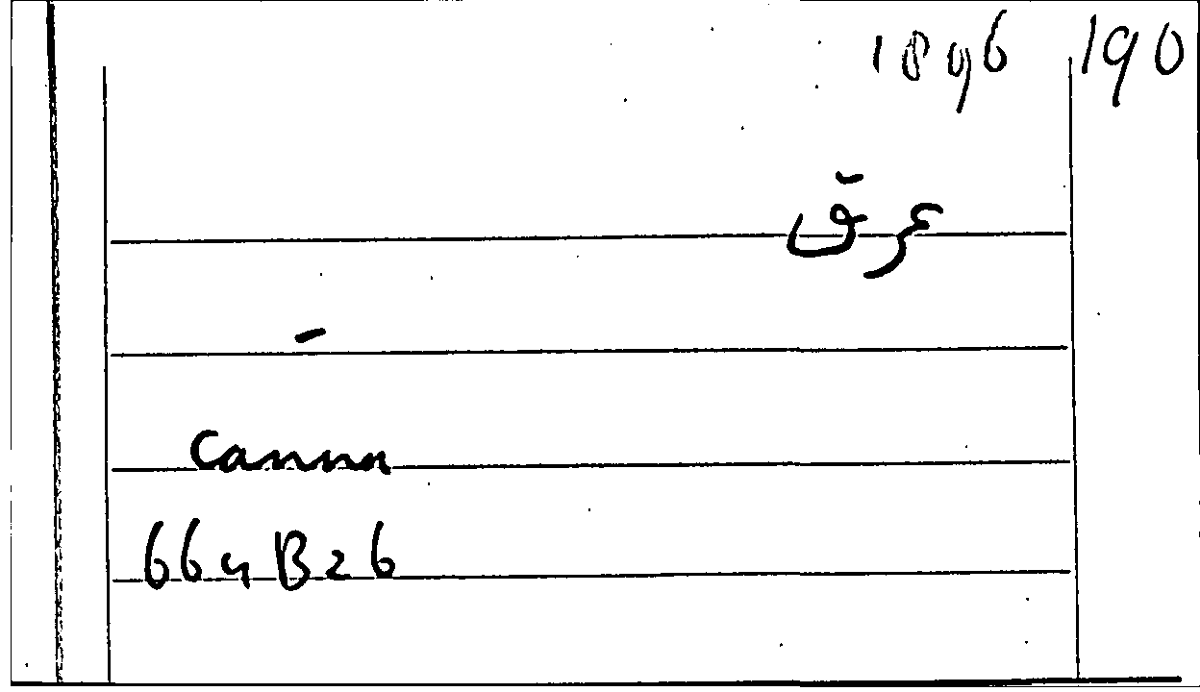 1896 190
عرق
-
Canna
664B26